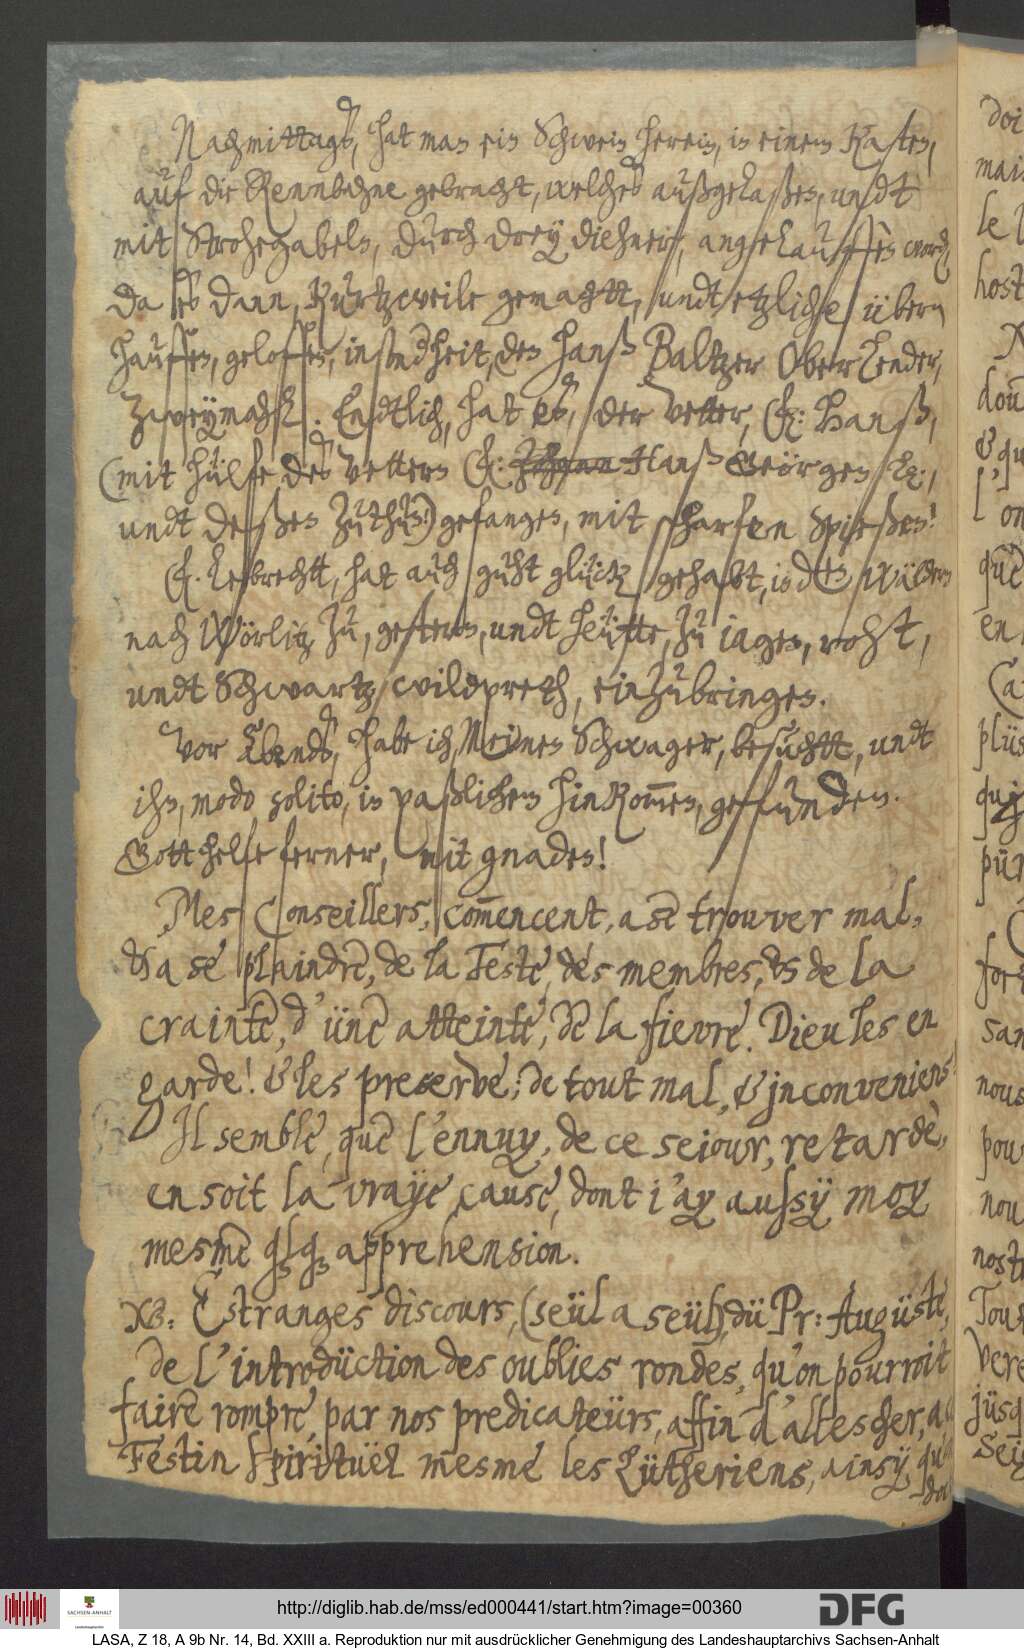 Nachmittagß, hat man ein Schwein herein, in einem Kasten,
auf die Rennbahne gebracht, welches außgelaßen, undt
mit Strohegabeln, durch drey diehner, angelauffen word
da es dann, Kurtzweile gemachtt, undt etzliche übern
hauffen, geloffen, insond'heit, den Hanß Baltzer Oberlender,
Zweymahl. Endtlich, hat es, der Vetter, F: Hanß,
(mit hülfe des Vettern F: Johann Hanß Geörgen
undt deßen Zuthun) gefangen, mit scharfen Spießen!
F. Lebrechtt, hat auch guht glück gehabt, in den Wäldern
nach Wörlitz zu, gestern, undt heütte, zu iagen, roht,
undt Schwartz, wildpreth, einzubringen.
Vor Abends, habe ich, Meinen Schwager, besuchtt, undt
ihn, modo solito, in paßlichem hinkommen, gefunden.
Gott helfe ferner, mit gnaden!
Mes Conseillers, com̄encent, a se trouver mal,
& a se plaindre, de la Teste, des membres, & de la
crainte, d'üne atteinte, de la fievre. Dieu les en
garde! & les preserve, de tout mal, & inconveniens!
Il semble, que l'ennuy, de ce seiour, retardè,
en soit la vraye cause, dont i'ay aussÿ moy
mesme qlq apprehension.
NB: Estranges discours, (seül a seül) dü Pr: Augüste,
de l'introdüction des oublies rondes, qu'on pourroit
faire rompre, par nos predicateürs, affin d'allescher, au
Festin Spirituël mesme les Lütheriens, ainsÿ qu'a
doi
mais
le
host
& qu
l'on
en
plüs
qui
pür
fort
san
nous
pou
nou
nost
Tous
vere
jüsq
Sei
http://diglib.hab.de/mss/ed000441/start.htm?image=00360
SACHSEN-ANHALT
DFG
LASA, Z 18, A 9b Nr. 14, Bd. XXIII a. Reproduktion nur mit ausdrücklicher Genehmigung des Landeshauptarchivs Sachsen-Anhalt